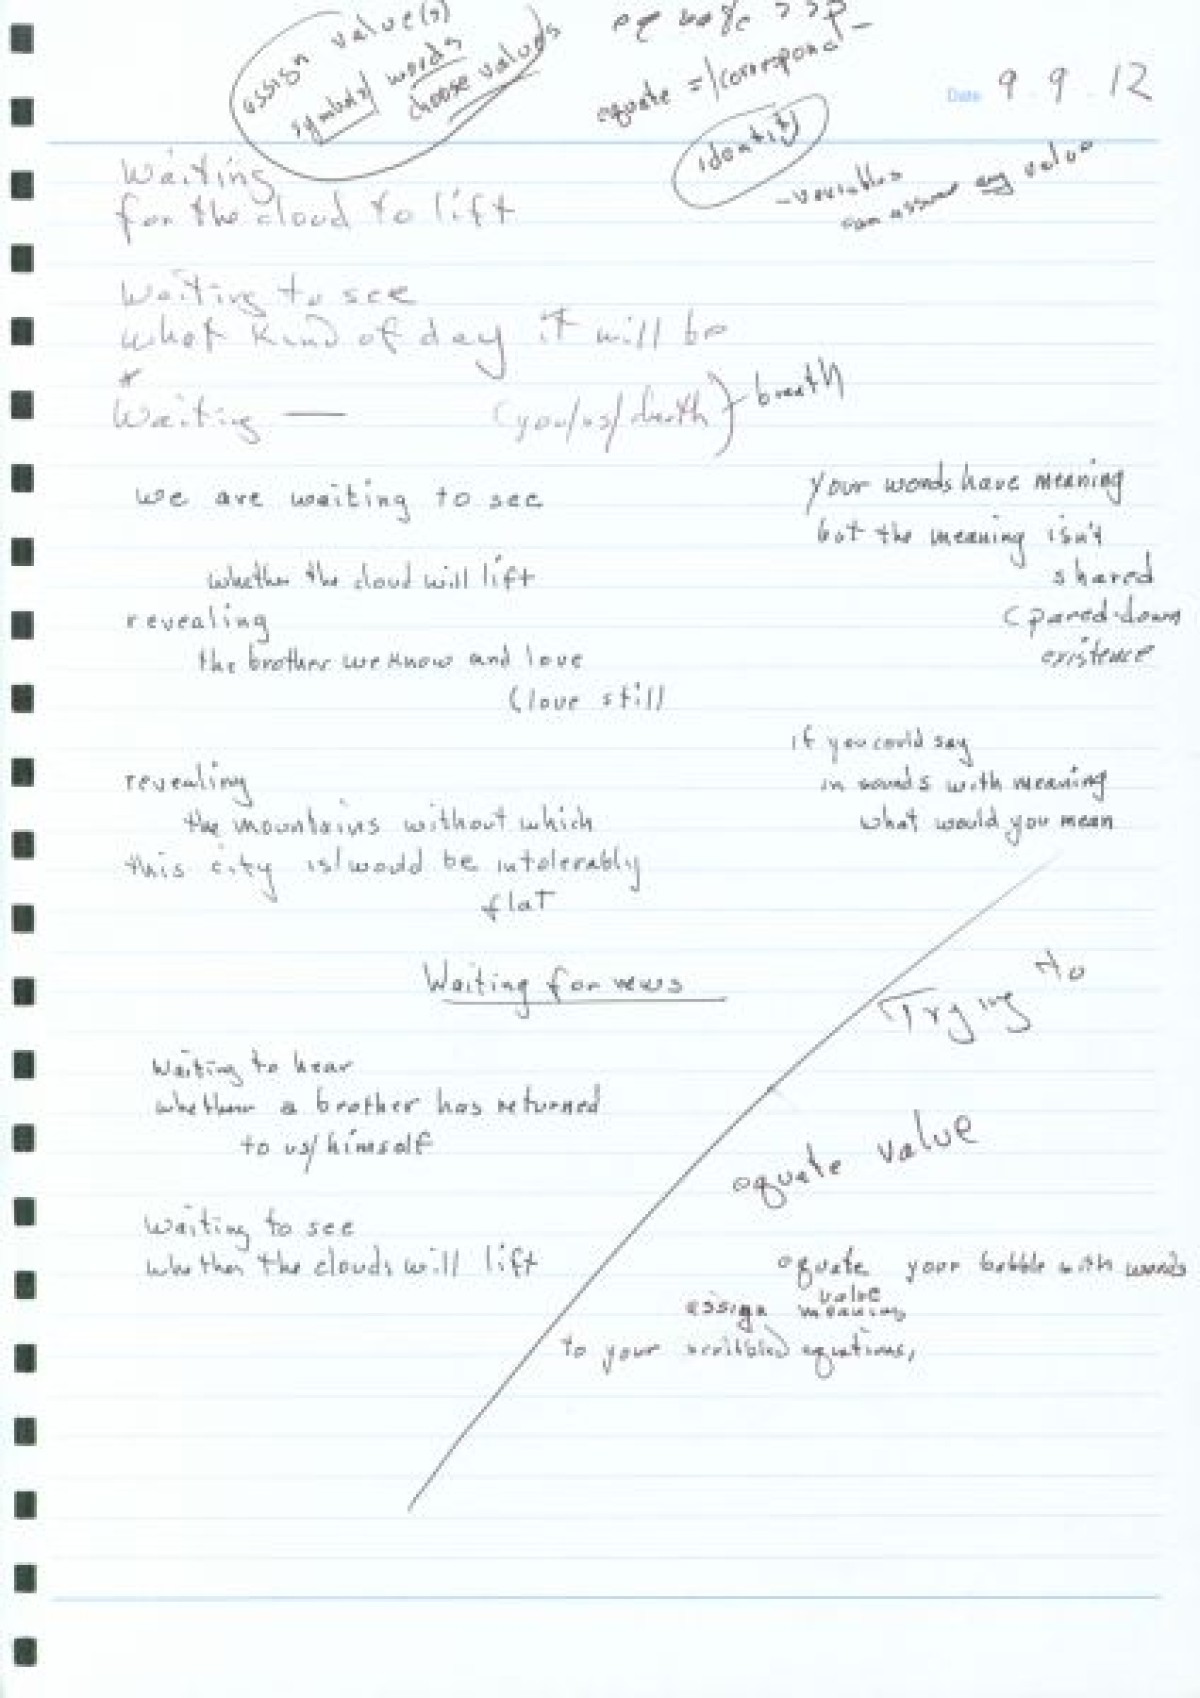 assign value(s)
symbols/words
choose values
equate =/correspond
identity
- variables
can assume any value
Date 9.9.12
Waiting
for the cloud to lift
Waiting to see
what kind of day it will be
*
Waiting — (you/us/death) - breath
we are waiting to see
whether the cloud will lift
revealing
the brother we know and love
(love still
revealing
the mountains without which
this city is/would be intolerably
flat
Your words have meaning
but the meaning isn't
shared
(pared-down
existence
if you could say
in sounds with meaning
what would you mean
Waiting for news
Waiting to hear
whether a brother has returned
to us/himself
Waiting to see
whether the clouds will lift
Trying to
equate value
equate your babble with words
value
assign meaning
to your scribbled equations,